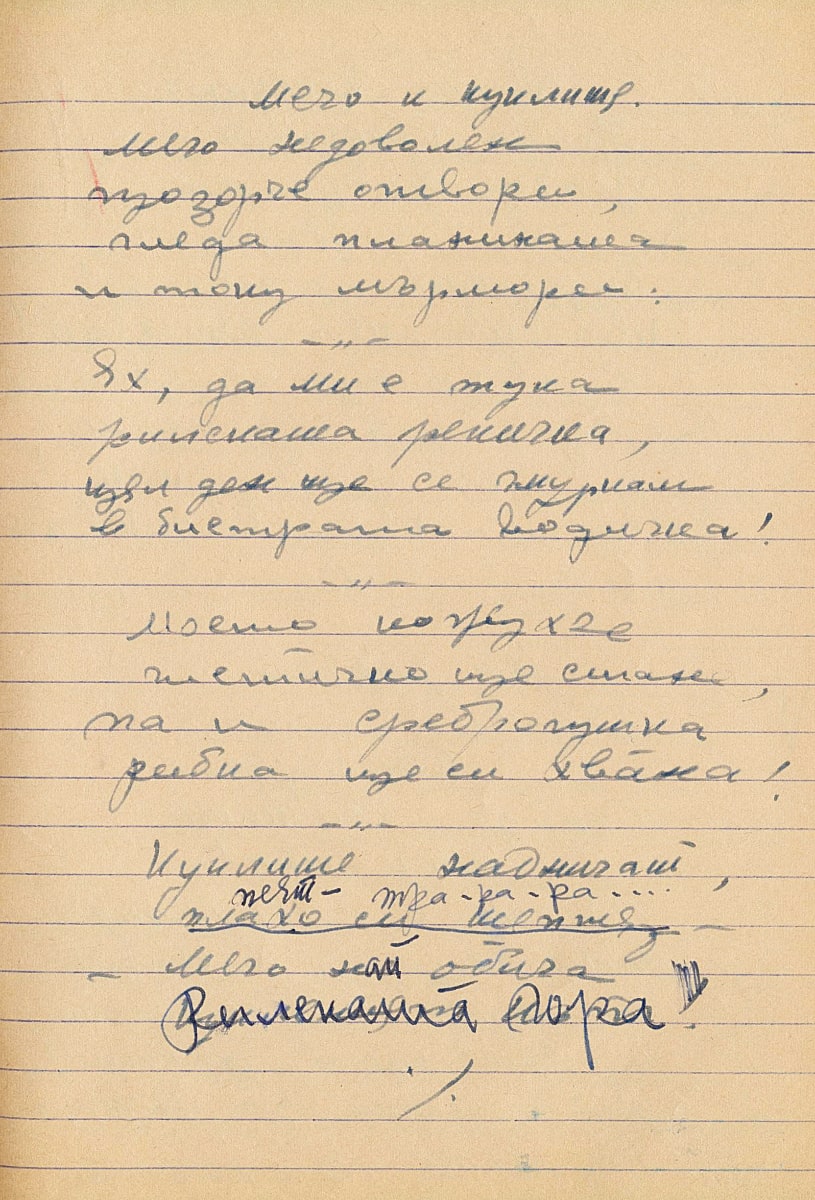 Мечо и куклите.
Мечо недоволен
прозорче отвори,
гледа планината
и току мърмори:
—"—
Ях, да ми е тука
рилската рекичка,
цял ден ще се гмуркам
в бистрата водичка!
—"—
Моето кожухче
чистичко ще стане,
па и среброгушка
рибка ще си хвана!
—"—
Куклите надничат,
пеят – тра-ра-ра-ра....
плахо си шептят –
– Мечо най обича
Рилската гора!